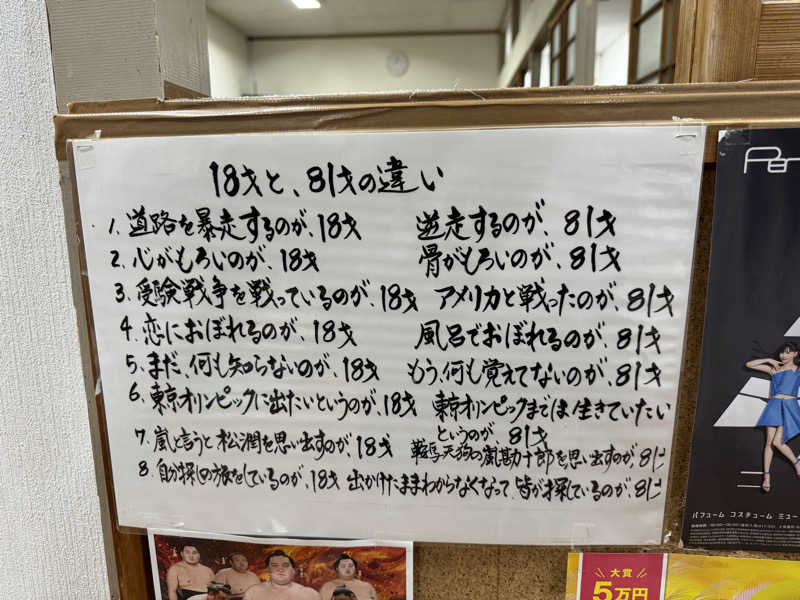 18才と、81才の違い
1. 道路を暴走するのが、18才 逆走するのが、81才
2. 心がもろいのが、18才 骨がもろいのが、81才
3. 受験戦争を戦っているのが、18才 アメリカと戦ったのが、81才
4. 恋におぼれるのが、18才 風呂でおぼれるのが、81才
5. まだ、何も知らないのが、18才 もう、何も覚えてないのが、81才
6. 東京オリンピックに出たいというのが、18才 東京オリンピックまでは生きていたい
というのが 81才
7. 嵐と言うと松潤を思い出すのが、18才 鞍馬天狗の嵐勘十郎を思い出すのが、81才
8. 自分探しの旅をしているのが、18才 出かけたままわからなくなって、皆が探しているのが、81才
パフューム コスチューム ミュー
大賞
5万円